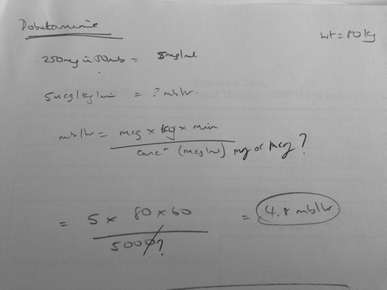 Dobutamine
wt = 80kg
250mg in 50mls = 5mg/ml
5mcg/kg/min = ? mls/hr
mls/hr = mcg x kg x min
concn (mcg/ml) mg or mcg?
= 5 x 80 x 60 = 4.8 mls/hr
5000?